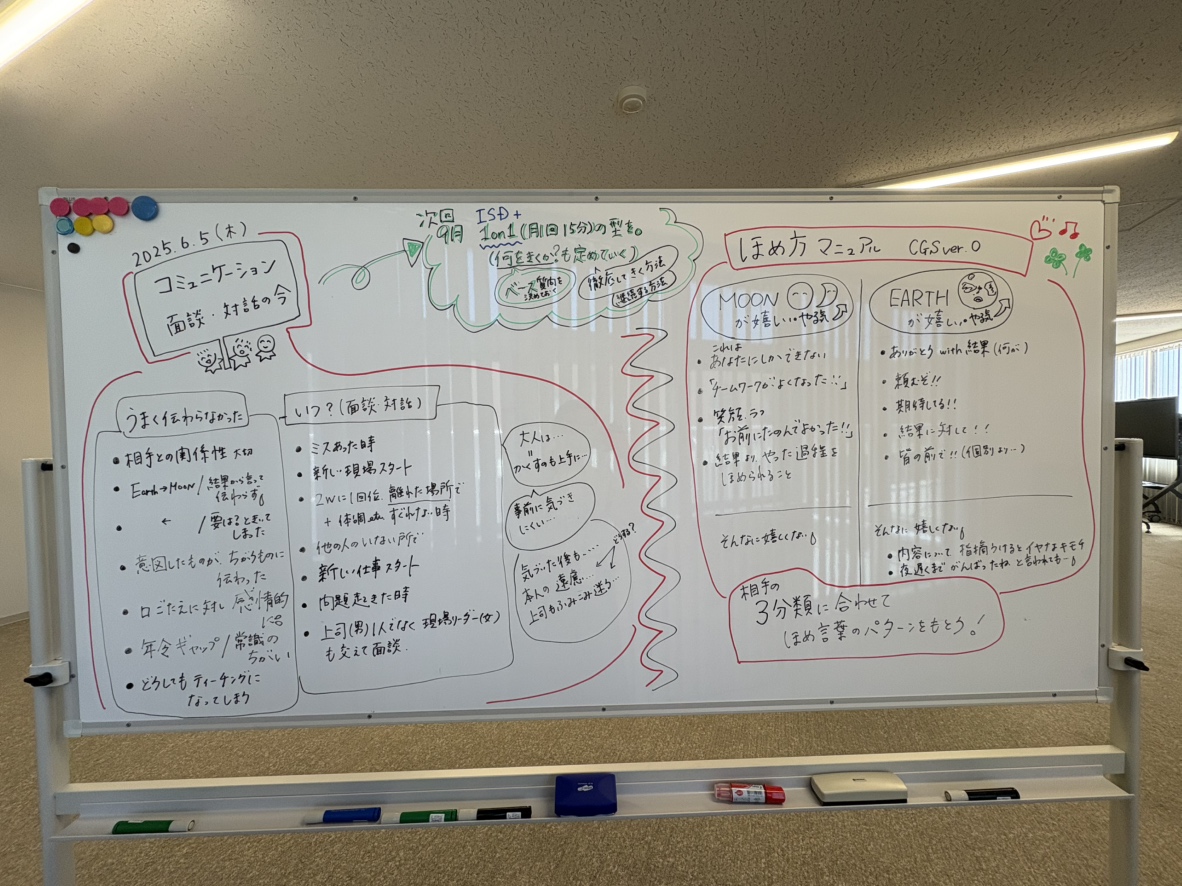 2025.6.5(木)
コミュニケーション
面談・対話の今
次回
9月
ISD+
1on1(月1回15分)の型を。
(何をきくか?も定めていく)
ベース
質問を
決めておく
徹底してきく方法
準備する方法
うまく伝わらなかった
・相手との関係性 大切
・Earth→Moon/結果から言って
伝わらず。
・ ← /要はときいて
しまった
・意図したものが、ちがうものに
伝わった
・口ごたえに対し感情的
に
・年令ギャップ/常識の
ちがい
・どうしてもティーチングに
なってしまう
いつ?(面談・対話)
・ミスあった時
・新しい現場スタート
・2Wに1回位、離れた場所で
+ 体調etc. すぐれない時
・他の人のいない所で…
・新しい仕事スタート
・問題起きた時
・上司(男)1人でなく 現場リーダー(女)
も交えて面談.
大人は…
かくすのも上手に…
事前に気づき
にくい…
気づいた後も…
本人の遠慮…
上司もふみこみ迷う…
どうする?
ほめ方マニュアル CGS ver.0
MOON
が嬉しい。や強
これは
・あなたにしかできない
・「チームワークがよくなった!!」
・笑顔.
「お前にたのんでよかった!!」
・結果より、やった過程を
ほめられること
そんなに嬉しくない。
EARTH
が嬉しい。や強
・ありがとう with 結果(何が)
・頼むぞ!!
・期待してる!!
・結果に対して!!
・皆の前で!!(個別より…)
そんなに嬉しくない。
・内容について指摘うけるとイヤなキモチ
・夜遅くまでがんばったねと言われても…。
相手の
3分類に合わせて
ほめ言葉のパターンをもとう!